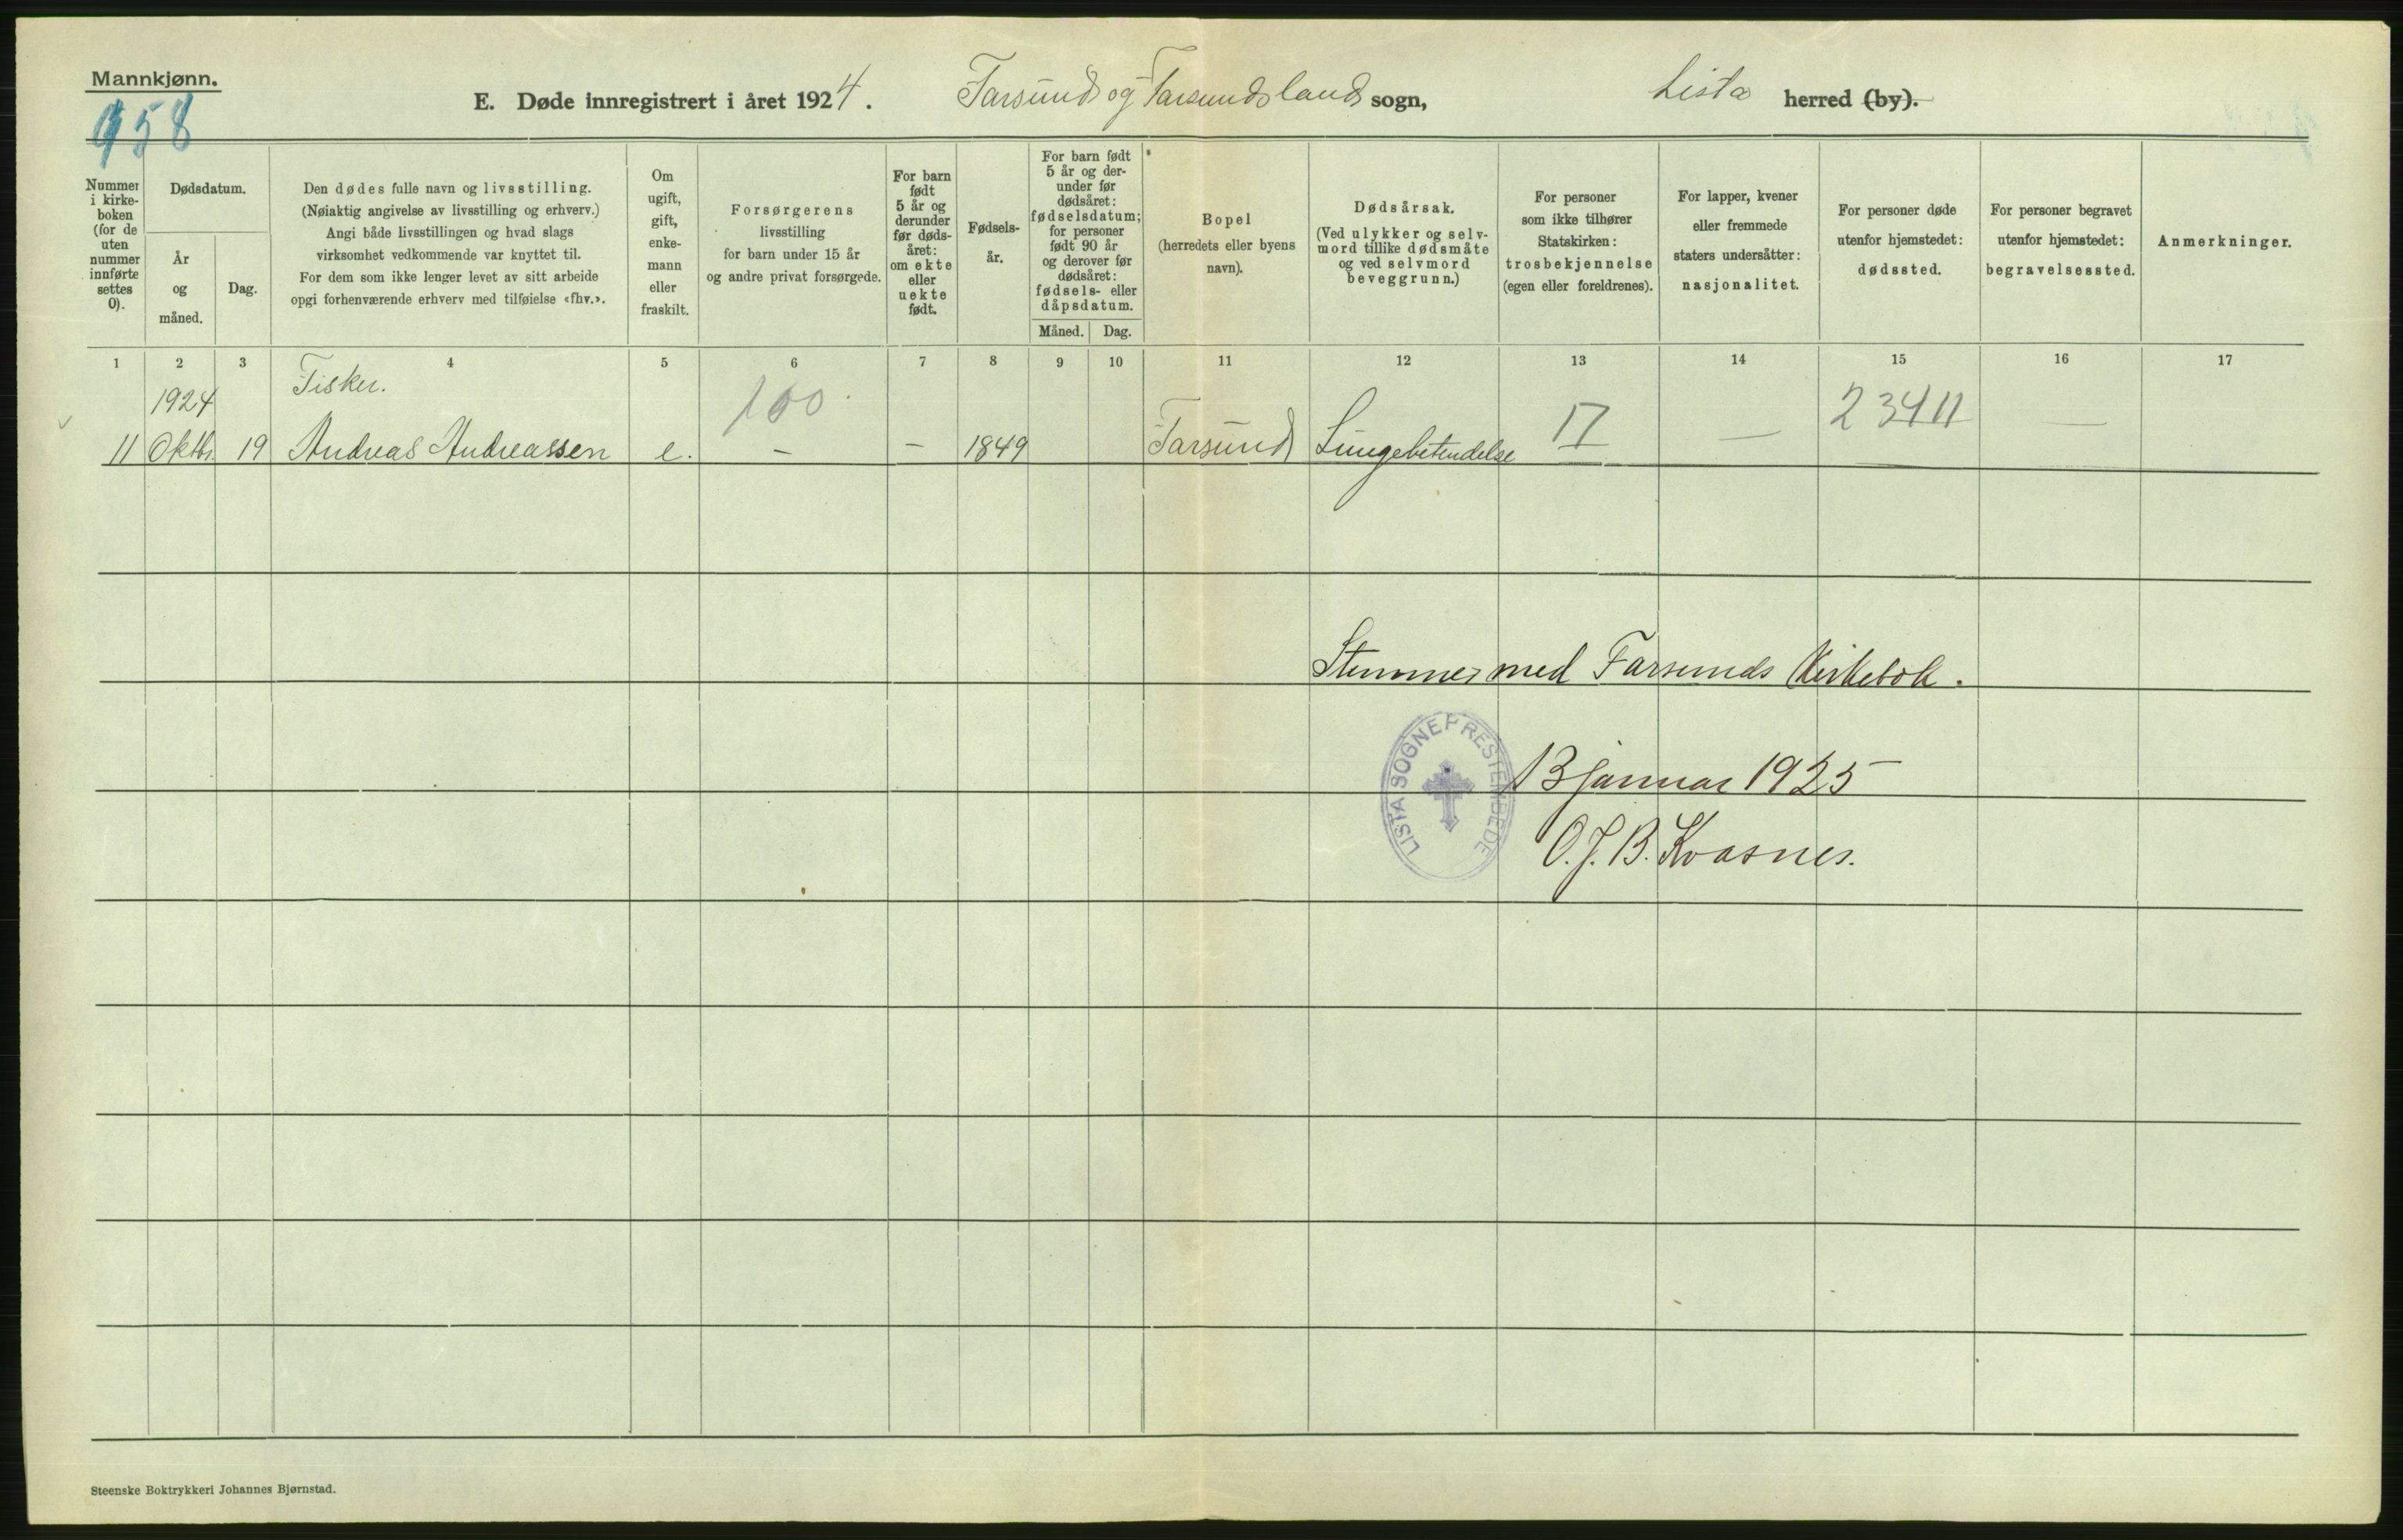 Mannkjønn.
958
E. Døde innregistrert i året 1924. Farsund og Farsunds land sogn, Lista herred (by).
Nummer i kirke-boken (for de uten nummer innførte settes 0).
Dødsdatum.
År og måned.
Dag.
Den dødes fulle navn og livsstilling.
(Nøiaktig angivelse av livsstilling og erhverv.)
Angi både livsstillingen og hvad slags
virksomhet vedkommende var knyttet til.
For dem som ikke lenger levet av sitt arbeide
opgi forhenværende erhverv med tilføielse «fhv.».
Om ugift, gift, enke-mann eller fraskilt.
Forsørgerens
livsstilling
for barn under 15 år
og andre privat forsørgede.
For barn født 5 år og derunder før døds-året: om ekte eller uekte født.
Fødsels-år.
For barn født 5 år og der-under før dødsåret: fødselsdatum; for personer født 90 år og derover før dødsåret: fødsels- eller dåpsdatum.
Måned. Dag.
Bopel
(herredets eller byens
navn).
Dødsårsak.
(Ved ulykker og selv-
mord tillike dødsmåte
og ved selvmord
beveggrunn.)
For personer
som ikke tilhører
Statskirken:
trosbekjennelse
(egen eller foreldrenes).
For lapper, kvener
eller fremmede
staters undersåtter:
nasjonalitet.
For personer døde
utenfor hjemstedet:
dødssted.
For personer begravet
utenfor hjemstedet:
begravelsessted.
Anmerkninger.
1 2 3 4 5 6 7 8 9 10 11 12 13 14 15 16 17
Fisker.
1924 100 17 — 23411 —
11 Oktbr. 19 Andreas Andreassen e. – – 1849 Farsund Lungebetendelse
Stemmer med Farsunds Kirkebok.
LISTA SOGNEPRESTEMBEDE
13 januar 1925
O. J. B. Kvasnes.
Steenske Boktrykkeri Johannes Bjørnstad.